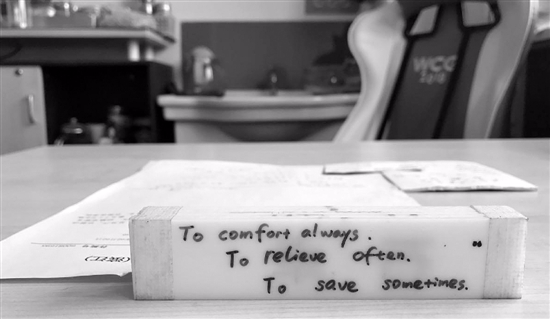 WCG
To comfort always.
To relieve often.
To save sometimes.